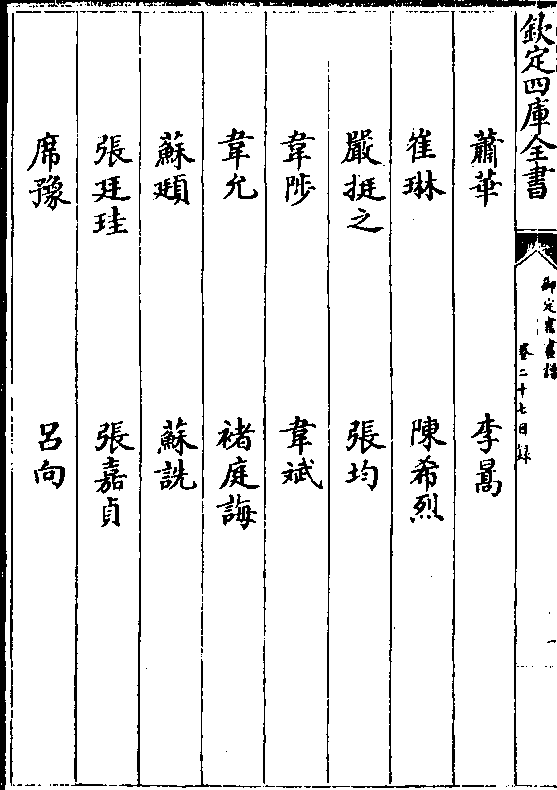 欽定四庫全書
御定書畫譜
卷二十七目錄
蕭華 李暠
崔琳 陳希烈
嚴挺之 張均
韋陟 韋斌
韋允 褚庭誨
蘇頲 蘇詵
張廷珪 張嘉貞
席豫 呂向